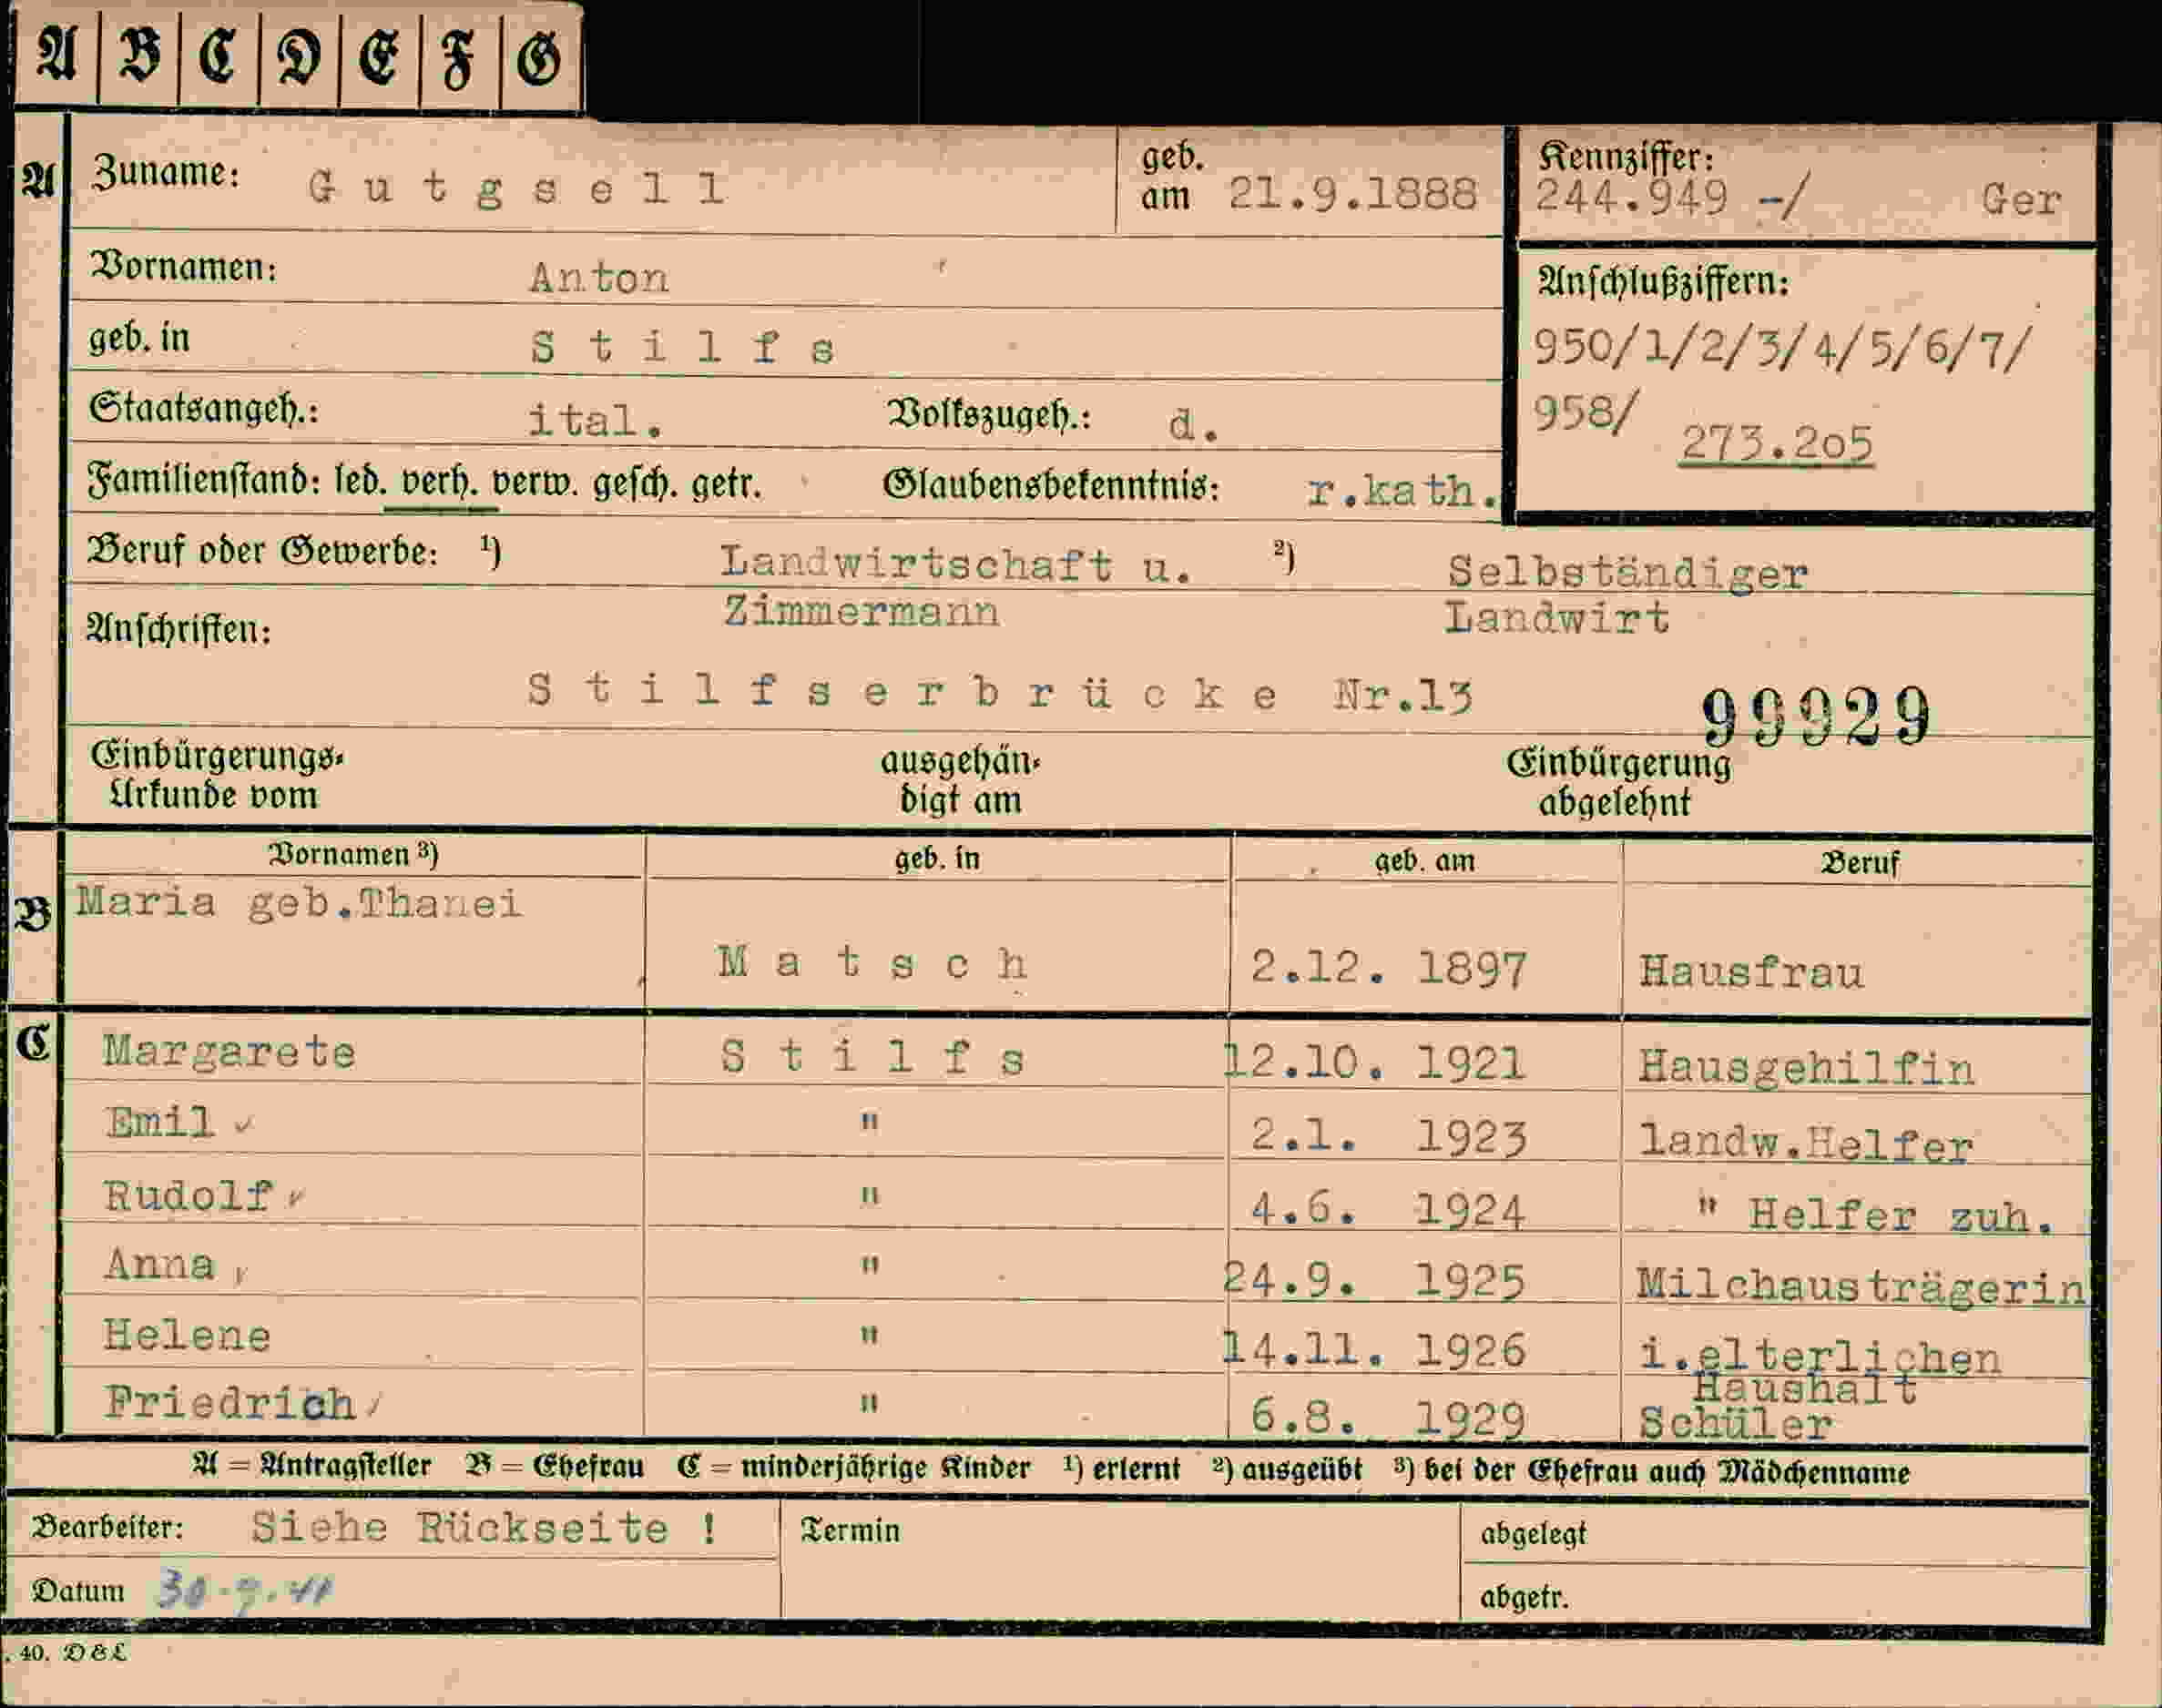 A B C D E F G
A Zuname: Gutgsell geb. am 21.9.1888 Kennziffer: 244.949 -/ Ger
Vornamen: Anton
Anschlußziffern:
geb. in Stilfs 950/1/2/3/4/5/6/7/
Staatsangeh.: ital. Volkszugeh.: d. 958/ 273.205
Familienstand: led. verh. verw. gesch. getr. Glaubensbekenntnis: r.kath.
Beruf oder Gewerbe: 1) Landwirtschaft u. 2) Selbständiger
Zimmermann Landwirt
Anschriften:
Stilfserbrücke Nr.13 99929
Einbürgerungs- ausgehän- Einbürgerung
Urkunde vom digt am abgelehnt
Vornamen 3) geb. in geb. am Beruf
B Maria geb.Thanei
Matsch 2.12. 1897 Hausfrau
C Margarete Stilfs 12.10. 1921 Hausgehilfin
Emil " 2.1. 1923 landw.Helfer
Rudolf " 4.6. 1924 " Helfer zuh.
Anna " 24.9. 1925 Milchausträgerin
Helene " 14.11. 1926 i.elterlichen
Haushalt
Friedrich " 6.8. 1929 Schüler
A = Antragsteller B = Ehefrau C = minderjährige Kinder 1) erlernt 2) ausgeübt 3) bei der Ehefrau auch Mädchenname
Bearbeiter: Siehe Rückseite ! Termin abgelegt
Datum abgetr.
. 40. D & L